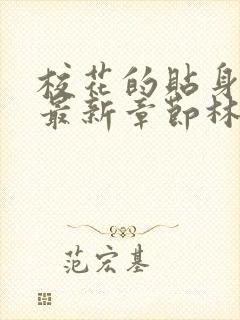 校花的贴身
最新章节林
范宏基